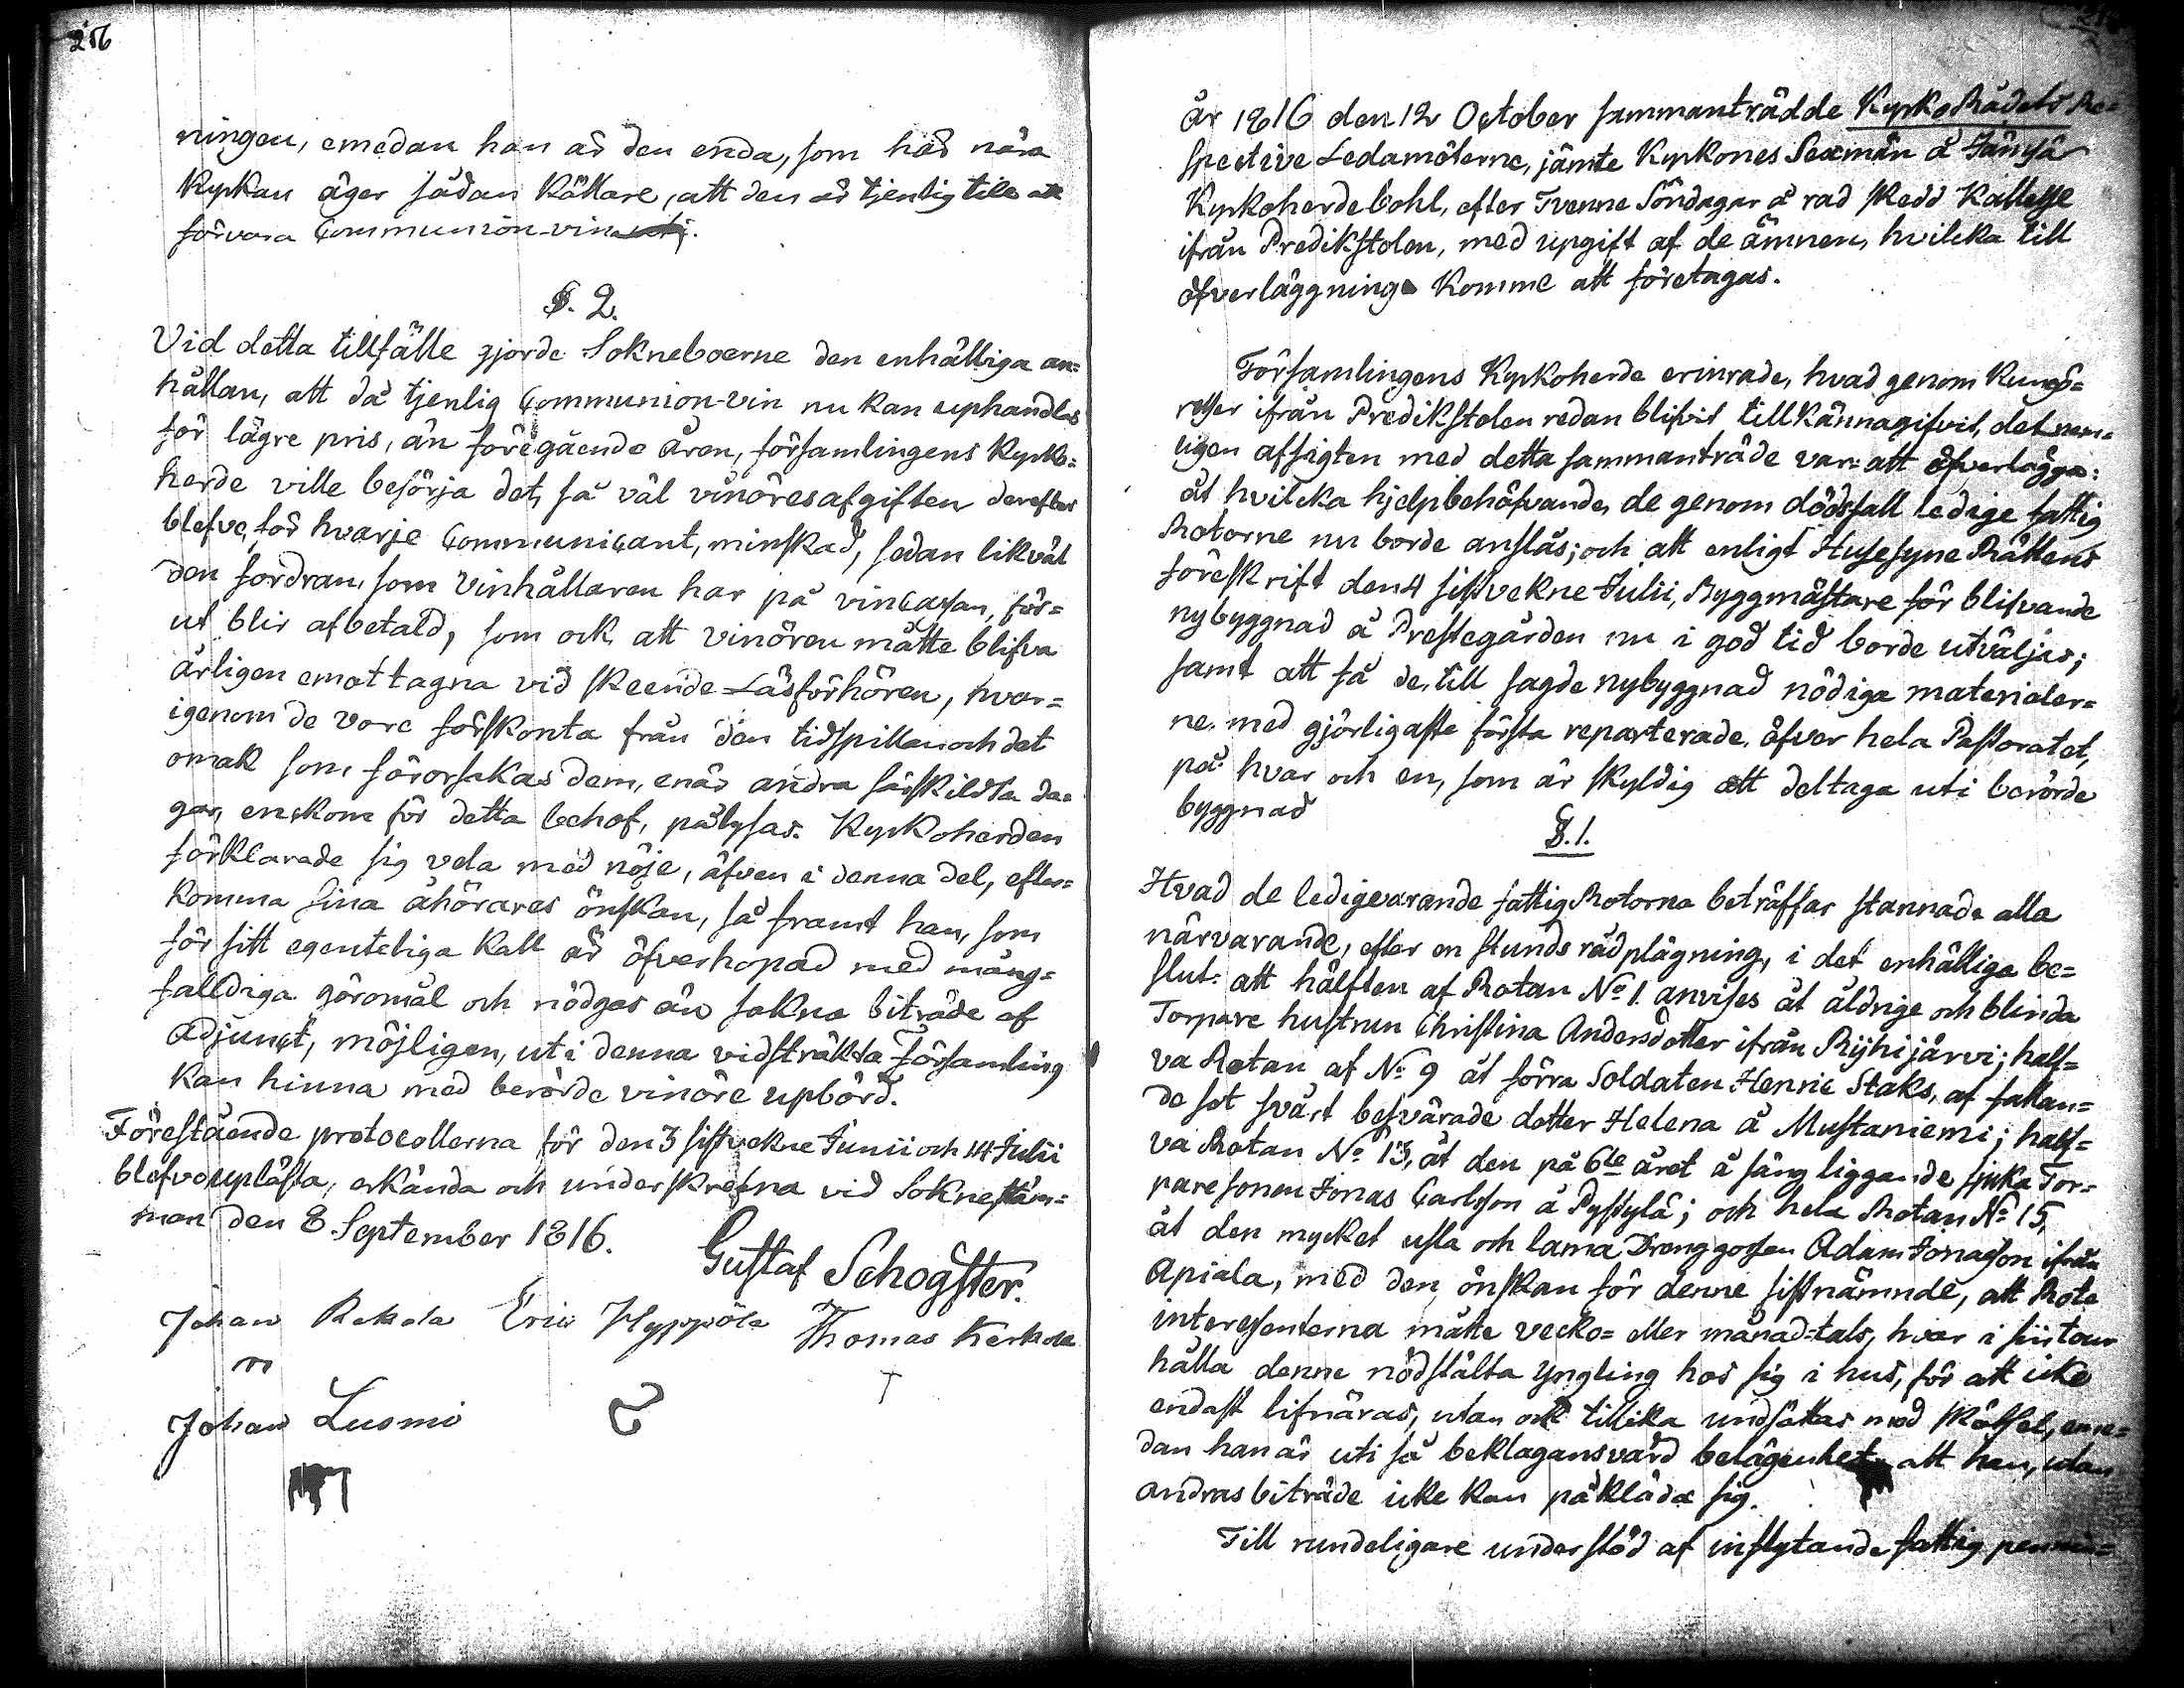 256
ningen, emedan han är den enda, som här nära
Kyrkan äger sådan Källare, att den är tjenlig till att
förvara Communion-vin
§. 2.
Vid detta tillfälle gjorde Sokneboerne den enhälliga an=
hållan, att då tjenlig Communion-vin nu kan uphandlas
för lägre pris, än föregående åren, församlingens Kyrko=
herde ville besörja det, så väl vinöresafgiften derefter
blefve, för hvarje Communicant, minskad, sedan likväl
den fordran, som Vinhållaren har på vincassan, för=
ut blir afbetald, som ock att vinören måtte blifva
årligen emottagna vid skeende Läsförhören, hvar=
igenom de vore förskonta från den tidspillan och det
omak som förorsakas dem, enär andra särskildta da=
gar, enskom för detta behof, pålysas. Kyrkoherden
förklarade sig vela med nöje, äfven i denna del, efter=
komma sina åhörares önskan, så framt han, som
för sitt egenteliga Kall är öfverhopad med mång=
falldiga göromål och nödgas än sakna biträde af
Adjunct, möjligen, uti denna vidsträkta Församling
kan hinna med berörde vinöre upbörd.
Förestående protocollerna för den 3 sistvekne Junii och 14 Julii
blefvo uplästa, erkända och underskrefna vid Soknestäm=
man den 8 September 1816.
Gustaf Schogster.
Johan Rekola Eric Hyppölä Thomas Kerkola
Johan Lusmi
År 1816 den 12 October sammanträdde KyrkoRådets Re=
spective Ledamöterne, jämte Kyrkones Sexmän å Jämsä
Kyrkoherdebohl, efter Tvenne Söndagar å rad skedd Kallelse
ifrån Predikstolen, med upgift af de ämnen, hvilcka till
öfverläggning komme att företagas.
Församlingens Kyrkoherde erinrade, hvad genom Kungö=
relser ifrån Predikstolen redan blifvit tillkännagifvit, det nem=
ligen afsigten med detta sammanträde var: att öfverlägga:
åt hvilcka hjelpbehöfvande, de genom dödsfall ledige fattig
Rotorne nu borde anslås; och att enligt Husesyne Rättens
föreskrift den 4 sistvekne Julii, Byggmästare för blifvande
nybyggnad å Prestegården nu i god tid borde utväljas;
samt att få de, till sagde nybyggnad nödiga materialer=
ne, med gjörligaste första reparterade, öfver hela Pastoratet,
på hvar och en, som är skyldig att deltaga uti berörde
byggnad
§. 1.
Hvad de ledigevarande fattig Rotorna beträffar stannade alla
närvarande, efter en stunds rådplägning, i det enhälliga be=
slut: att hälften af Rotan No 1. anvises åt åldrige och blinda
Torpare hustrun Christina Andersdotter ifrån Rijhijärvi; half=
va Rotan af No 9 åt förra Soldaten Henric Staks, af fallan=
de sot svårt besvärade dotter Helena å Mustaniemi; half=
va Rotan No 13, åt den på 6te året å säng liggande sjuka Tor=
paresonen Jonas Carlsson å Pyssylä; och hela Rotan No 15,
åt den mycket usla och lama Drenggossen Adam Jonasson ifrån
Apiala, med den önskan för denne sistnämnde, att Rote
interessenterna måtte vecko= eller månad=tals, hvar i sin tour
hålla denne nödstälta Yngling hos sig i hus, för att icke
endast lifnäras, utan ock tillika undsättas med skötsel, eme=
dan han är uti så beklagansvärd belägenhet att han, utan
andras biträde icke kan påkläda sig.
Till rundeligare understöd af inflytande fattig pennin=